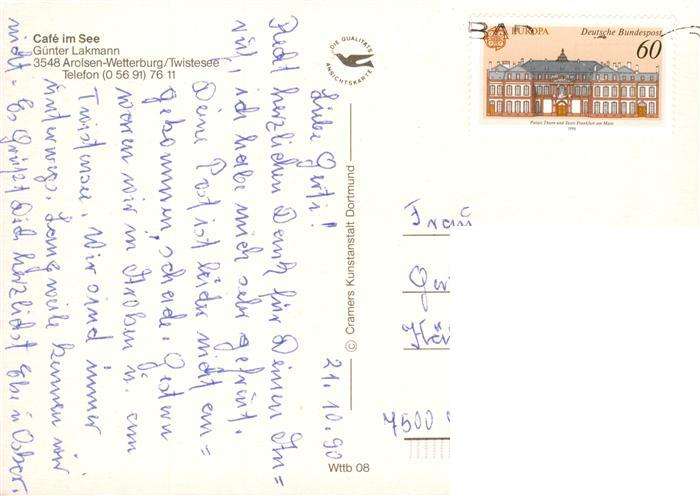 Café im See
Günter Lakmann
3548 Arolsen-Wetterburg/Twistesee
Telefon (0 56 91) 76 11
DIE QUALITÄTS
ANSICHTSKARTE
EUROPA
Deutsche Bundespost
60
Palais Thurn und Taxis Frankfurt am Main
1990
© Cramers Kunstanstalt Dortmund
Wttb 08
21.10.90
Liebe Gerti!
Recht herzlichen Dank für Deinen An=
ruf, ich habe mich sehr gefreut.
Deine Post ist leider nicht an=
gekommen, schade. Gestern
waren wir in Arolsen u. am
Twistesee. Wir sind immer
unterwegs, Langeweile kennen wir
nicht. Es grüßt Dich herzlichst Ebe u Oskar.
7500